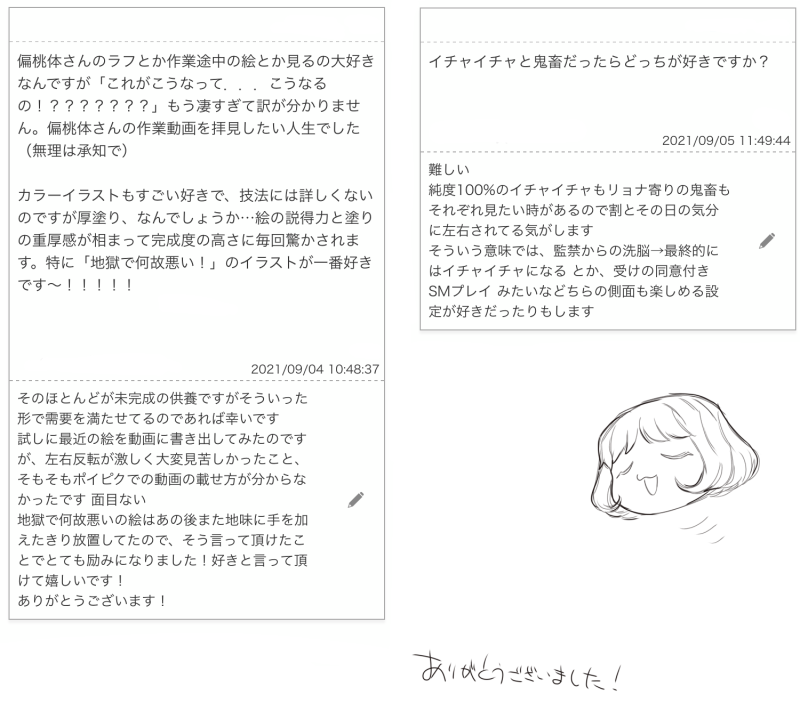 偏桃体さんのラフとか作業途中の絵とか見るの大好き
なんですが「これがこうなって．．． こうなる
の！？？？？？？？」もう凄すぎて訳が分かりませ
ん。偏桃体さんの作業動画を拝見したい人生でした
（無理は承知で）
カラーイラストもすごい好きで、技法には詳しくない
のですが厚塗り、なんでしょうか…絵の説得力と塗り
の重厚感が相まって完成度の高さに毎回驚かされま
す。特に「地獄で何故悪い！」のイラストが一番好き
です〜！！！！！
2021/09/04 10:48:37
そのほとんどが未完成の供養ですがそういった
形で需要を満たせてるのであれば幸いです
試しに最近の絵を動画に書き出してみたのです
が、左右反転が激しく大変見苦しかったこと、
そもそもポイピクでの動画の載せ方が分からな
かったです 面目ない
地獄で何故悪いの絵はあの後また地味に手を加
えたきり放置してたので、そう言って頂けたこ
とでとても励みになりました！好きと言って頂
けて嬉しいです！
ありがとうございます！
イチャイチャと鬼畜だったらどっちが好きですか？
2021/09/05 11:49:44
難しい
純度100%のイチャイチャもリョナ寄りの鬼畜も
それぞれ見たい時があるので割とその日の気分
に左右されてる気がします
そういう意味では、監禁からの洗脳→最終的に
はイチャイチャになる とか、受けの同意付き
SMプレイ みたいなどちらの側面も楽しめる設
定が好きだったりもします
ありがとうございました！